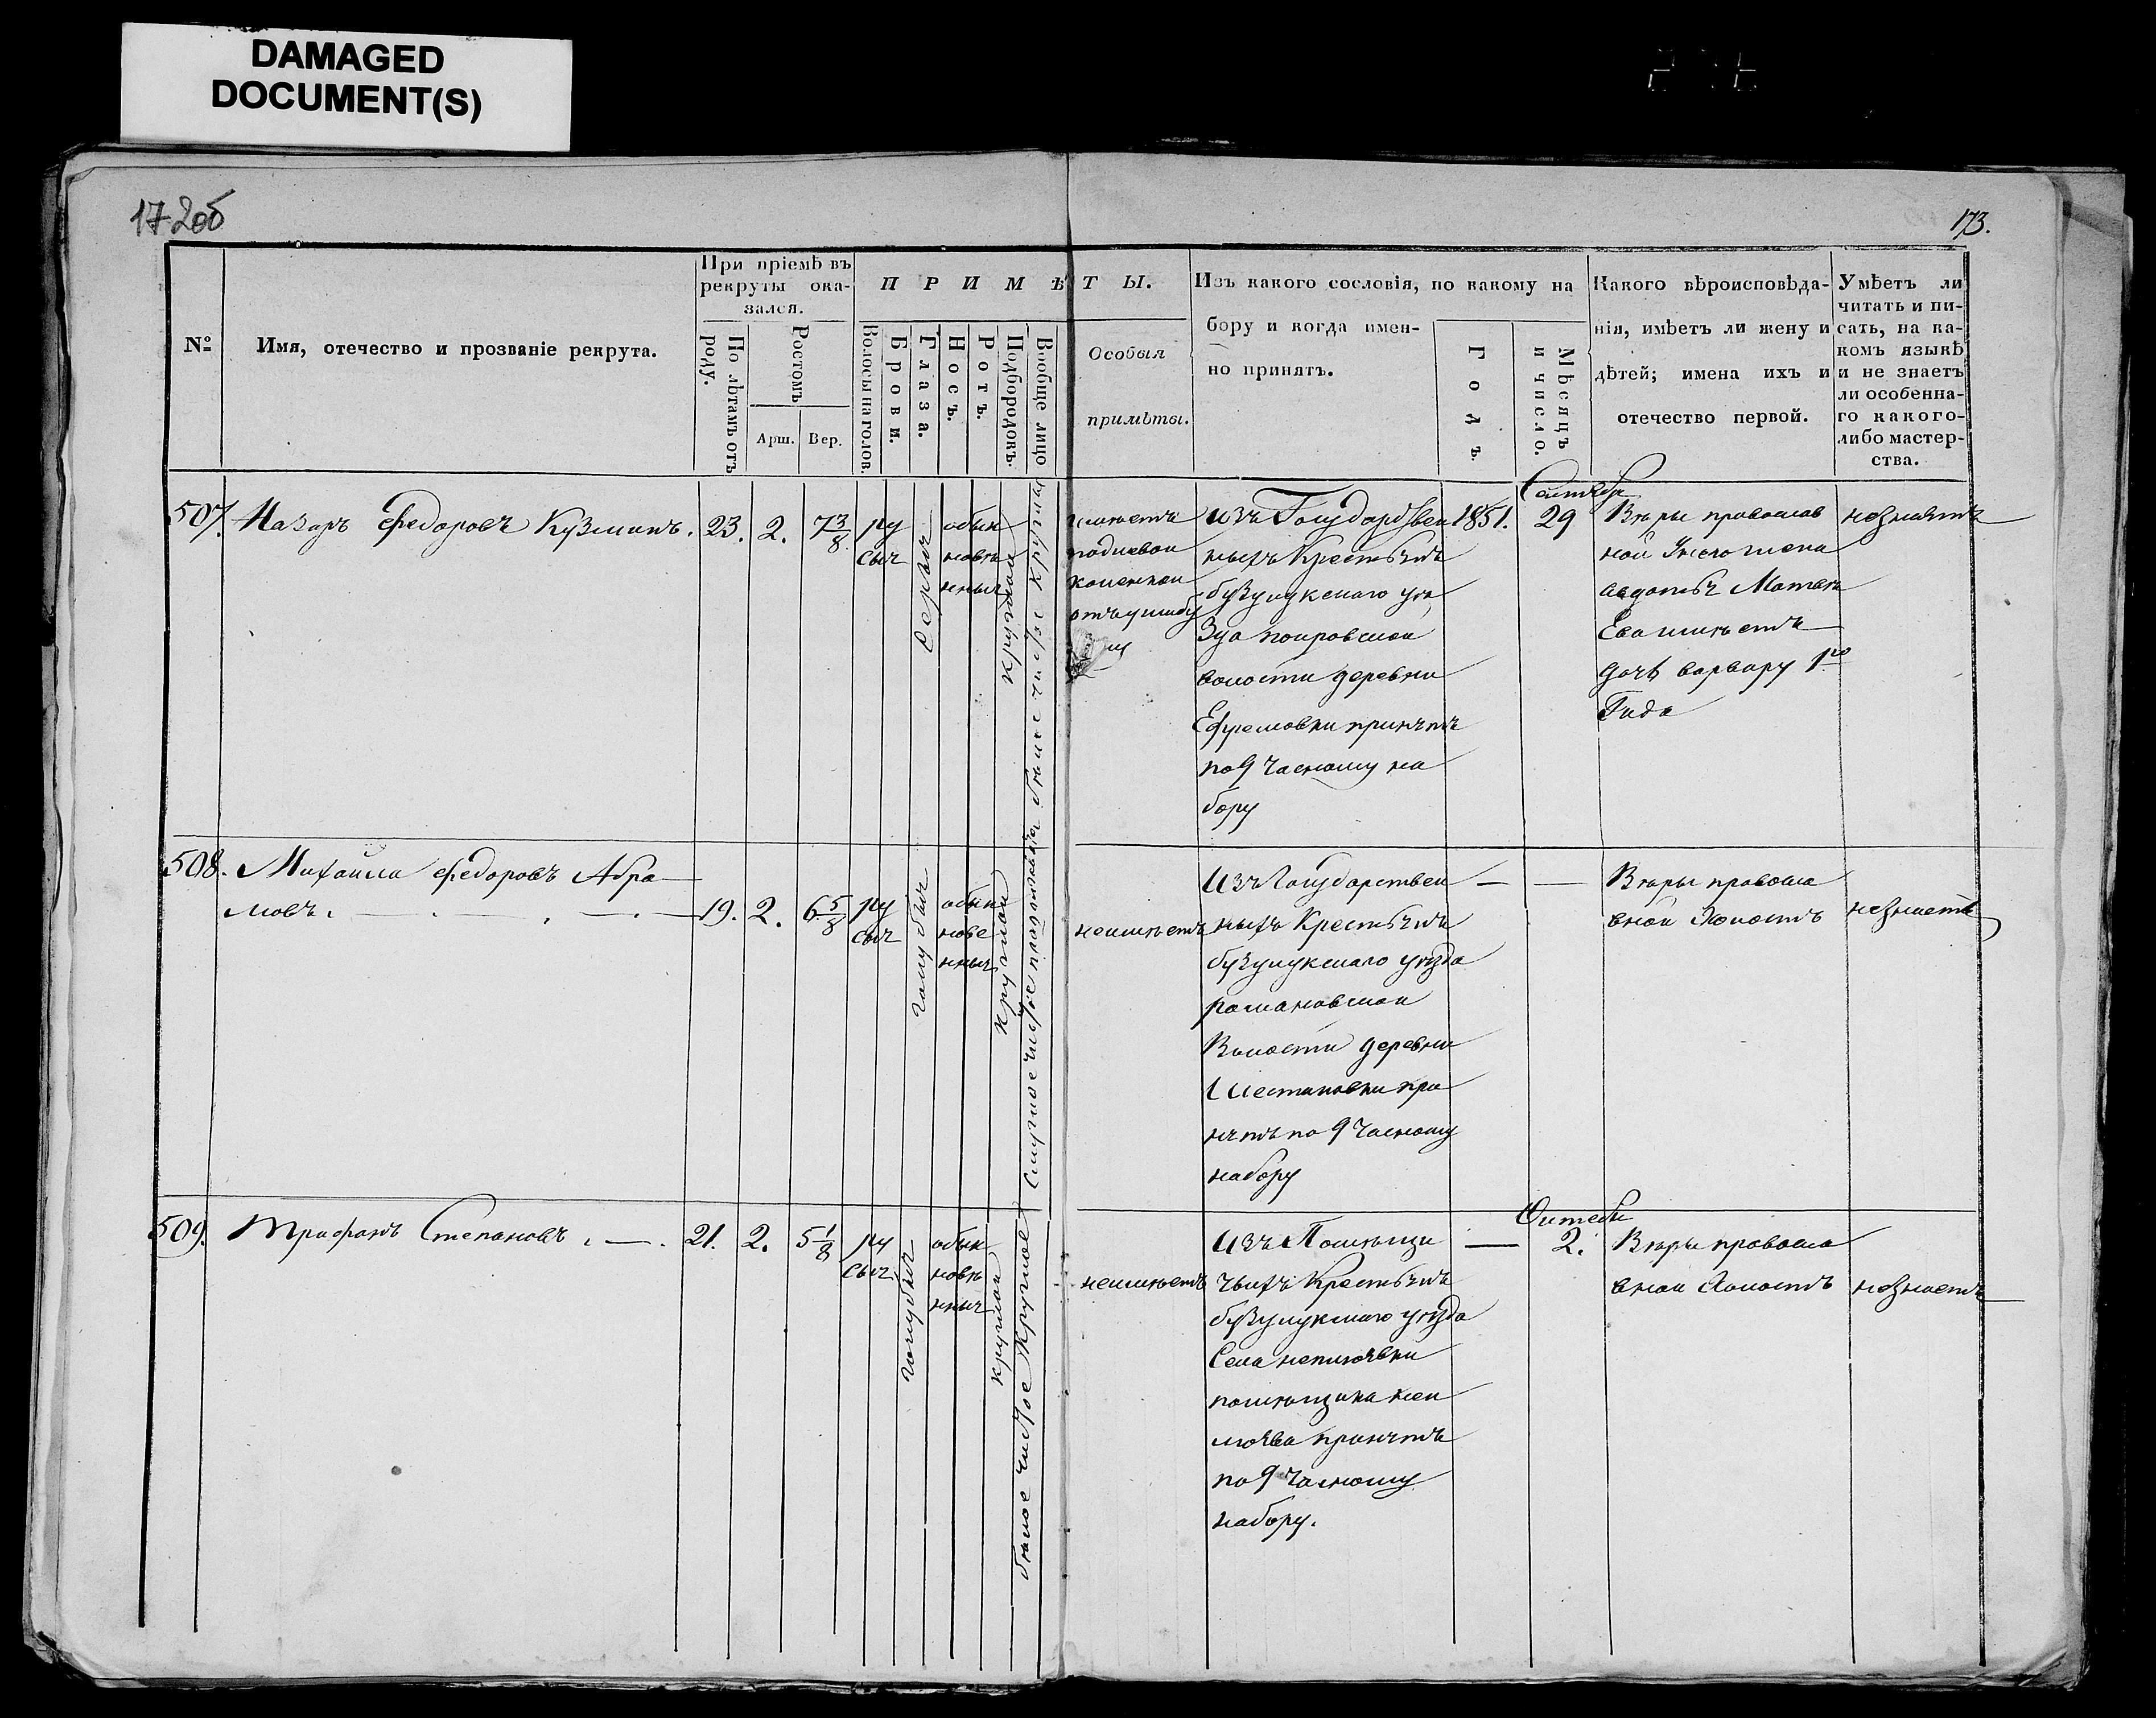 DAMAGED
DOCUMENT(S)
172об
173.
№
Имя, отечество и прозваніе рекрута.
При пріемѣ въ
рекруты ока-
зался.
По лѣтамъ отъ
роду.
Ростомъ
Арш.
Вер.
ПРИМѢТЫ.
Волосы на голов.
Брови.
Глаза.
Носъ.
Ротъ.
Подбородокъ.
Вообще лицо
Особыя
примѣты.
Изъ какого сословія, по какому на
бору и когда имен-
но принятъ.
Годъ.
Мѣсяцъ
и число.
Какого вѣроисповѣда-
нія, имѣетъ ли жену и
дѣтей; имена ихъ и
отечество первой.
Умѣетъ ли
читать и пи-
сать, на ка-
комъ языкѣ
и не знаетъ
ли особенна-
го какого-
либо мастер-
ства.
507.
Назаръ Федоровъ Кузминъ.
23.
2.
7 3/8
ру
сыя
серыя
обык
новѣ
нныя
круглой
белое чистое круглое
имѣетъ
подлевой
коленкой
отъ ушибу
изъ Государствен
ныхъ Крестьянъ
бузулукскаго уѣ
зда покровской
волости деревни
Ефремовки принятъ
по 9 Часному на
бору
1851.
Сентябр
29
Вѣры православ
ной Унего жена
авдотья Матвѣ
Ева имѣетъ
дочь варвару 1го
Года
незнаетъ
508.
Михаила Федоровъ Абра
мовъ.
19.
2.
6 5/8
ру
сыя
голубыя
обыкн
нове
нныя
круглой
Смуглое чистое продолговатое
неимѣетъ
Изъ Государствен
ныхъ Крестьянъ
бузулукскаго уѣзда
романовской
Волости деревни
Шестаковки при
нятъ по 9 Часному
набору
Вѣры правосла
вной Холостъ
незнаетъ
509.
Трифонъ Степановъ.
21.
2.
5 1/8
ру
сыя
голубыя
обык
новѣ
нныя
круглой
белое чистое круглое
неимѣетъ
Изъ Помѣщи
чьихъ Крестьянъ
бузулукскаго уѣзда
Села неплюевки
помѣщика неп
люева принятъ
по 9 Часному
набору.
Октебр
2.
Вѣры правосла
вной Холостъ
незнаетъ